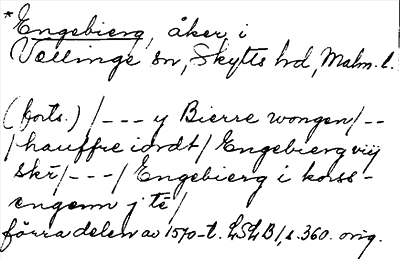 * Engebierg, åker i
Vellinge sn, Skytts hd, Malm. l.
(forts.) /--- y Bierre wongen/--
/hauffre iordt/ Engebierg viij
skr/---/ Engebierg i korss-
engenn j té/
förra delen av 1570-t. LSLB 1, s. 360. orig.